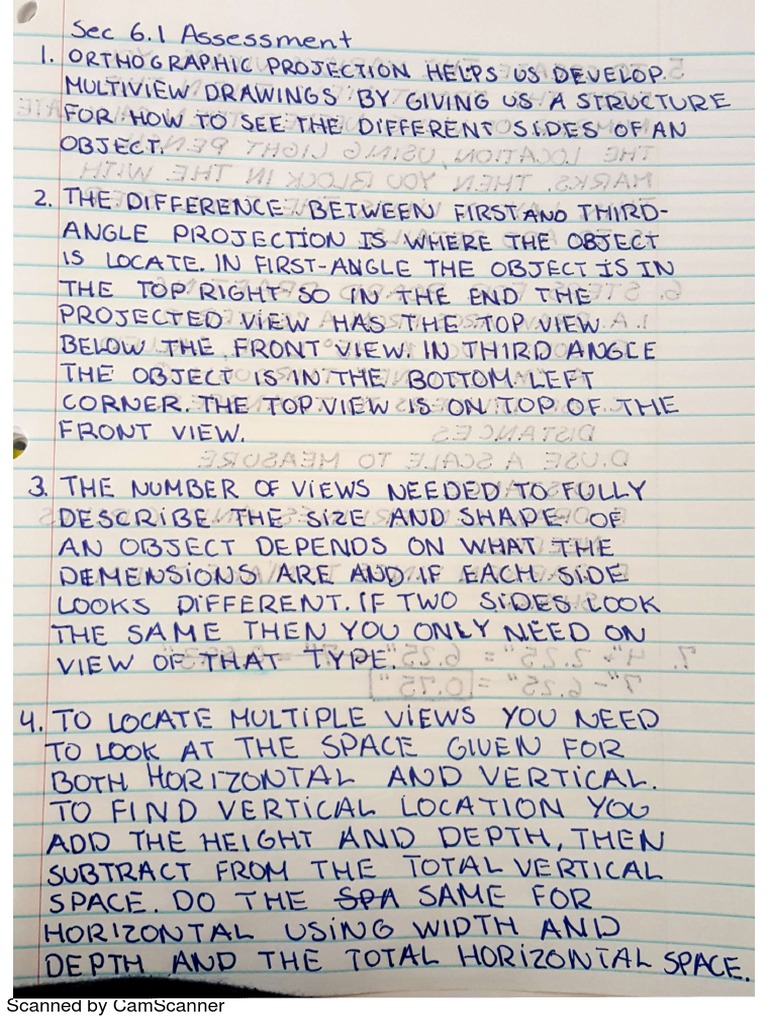 Sec 6.1 Assessment
1. ORTHOGRAPHIC PROJECTION HELPS US DEVELOP
MULTIVIEW DRAWINGS BY GIVING US A STRUCTURE
FOR HOW TO SEE THE DIFFERENT SIDES OF AN
OBJECT.
2. THE DIFFERENCE BETWEEN FIRST AND THIRD-
ANGLE PROJECTION IS WHERE THE OBJECT
IS LOCATE. IN FIRST-ANGLE THE OBJECT IS IN
THE TOP RIGHT SO IN THE END THE
PROJECTED VIEW HAS THE TOP VIEW
BELOW THE FRONT VIEW. IN THIRD ANGLE
THE OBJECT IS IN THE BOTTOM LEFT
CORNER. THE TOP VIEW IS ON TOP OF THE
FRONT VIEW.
3. THE NUMBER OF VIEWS NEEDED TO FULLY
DESCRIBE THE SIZE AND SHAPE OF
AN OBJECT DEPENDS ON WHAT THE
DEMENSIONS ARE AND IF EACH SIDE
LOOKS DIFFERENT. IF TWO SIDES LOOK
THE SAME THEN YOU ONLY NEED ON
VIEW OF THAT TYPE.
4. TO LOCATE MULTIPLE VIEWS YOU NEED
TO LOOK AT THE SPACE GIVEN FOR
BOTH HORIZONTAL AND VERTICAL.
TO FIND VERTICAL LOCATION YOU
ADD THE HEIGHT AND DEPTH, THEN
SUBTRACT FROM THE TOTAL VERTICAL
SPACE. DO THE SPA SAME FOR
HORIZONTAL USING WIDTH AND
DEPTH AND THE TOTAL HORIZONTAL SPACE.
Scanned by CamScanner